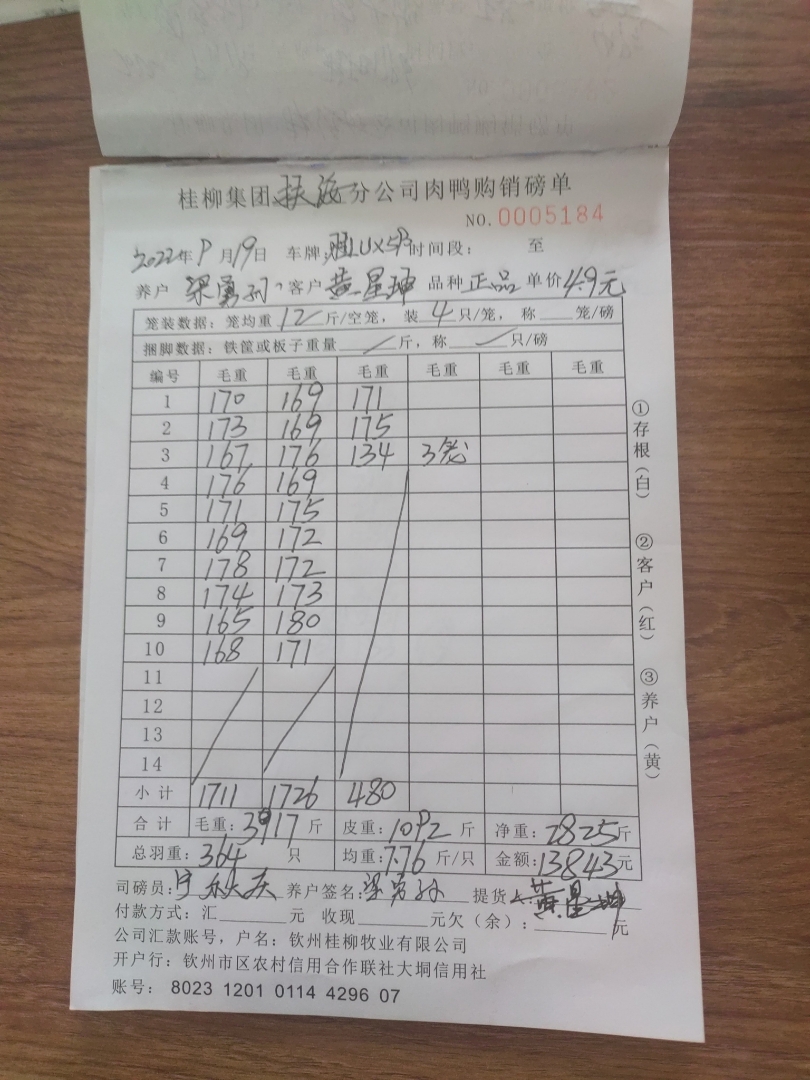 桂柳集团 分公司肉鸭购销磅单
NO.0005184
2022年 月19日 车牌: 时间段: 至
养户 梁勇 客户 黄星珅 品种 正品 单价 4.9元
笼装数据：笼均重 12 斤/空笼， 装 4 只/笼， 称 笼/磅
捆脚数据：铁筐或板子重量 / 斤，称 / 只/磅
编号 毛重 毛重 毛重 毛重 毛重 毛重
1 170 169 171
2 173 169 175
3 167 176 134 3笼
4 176 169
5 171 175
6 169 172
7 178 172
8 174 173
9 165 180
10 168 171
11
12
13
14
小计 1711 1726 480
合计 毛重: 3917 斤 皮重: 1092 斤 净重: 2825 斤
总羽重: 364 只 均重: 7.76 斤/只 金额: 13843 元
司磅员: 养户签名: 梁勇 提货人: 黄星珅
付款方式：汇 元 收现 元欠（余）： 元
公司汇款账号，户名：钦州桂柳牧业有限公司
开户行：钦州市区农村信用合作联社大垌信用社
账号： 8023 1201 0114 4296 07
①存根（白）
②客户（红）
③养户（黄）